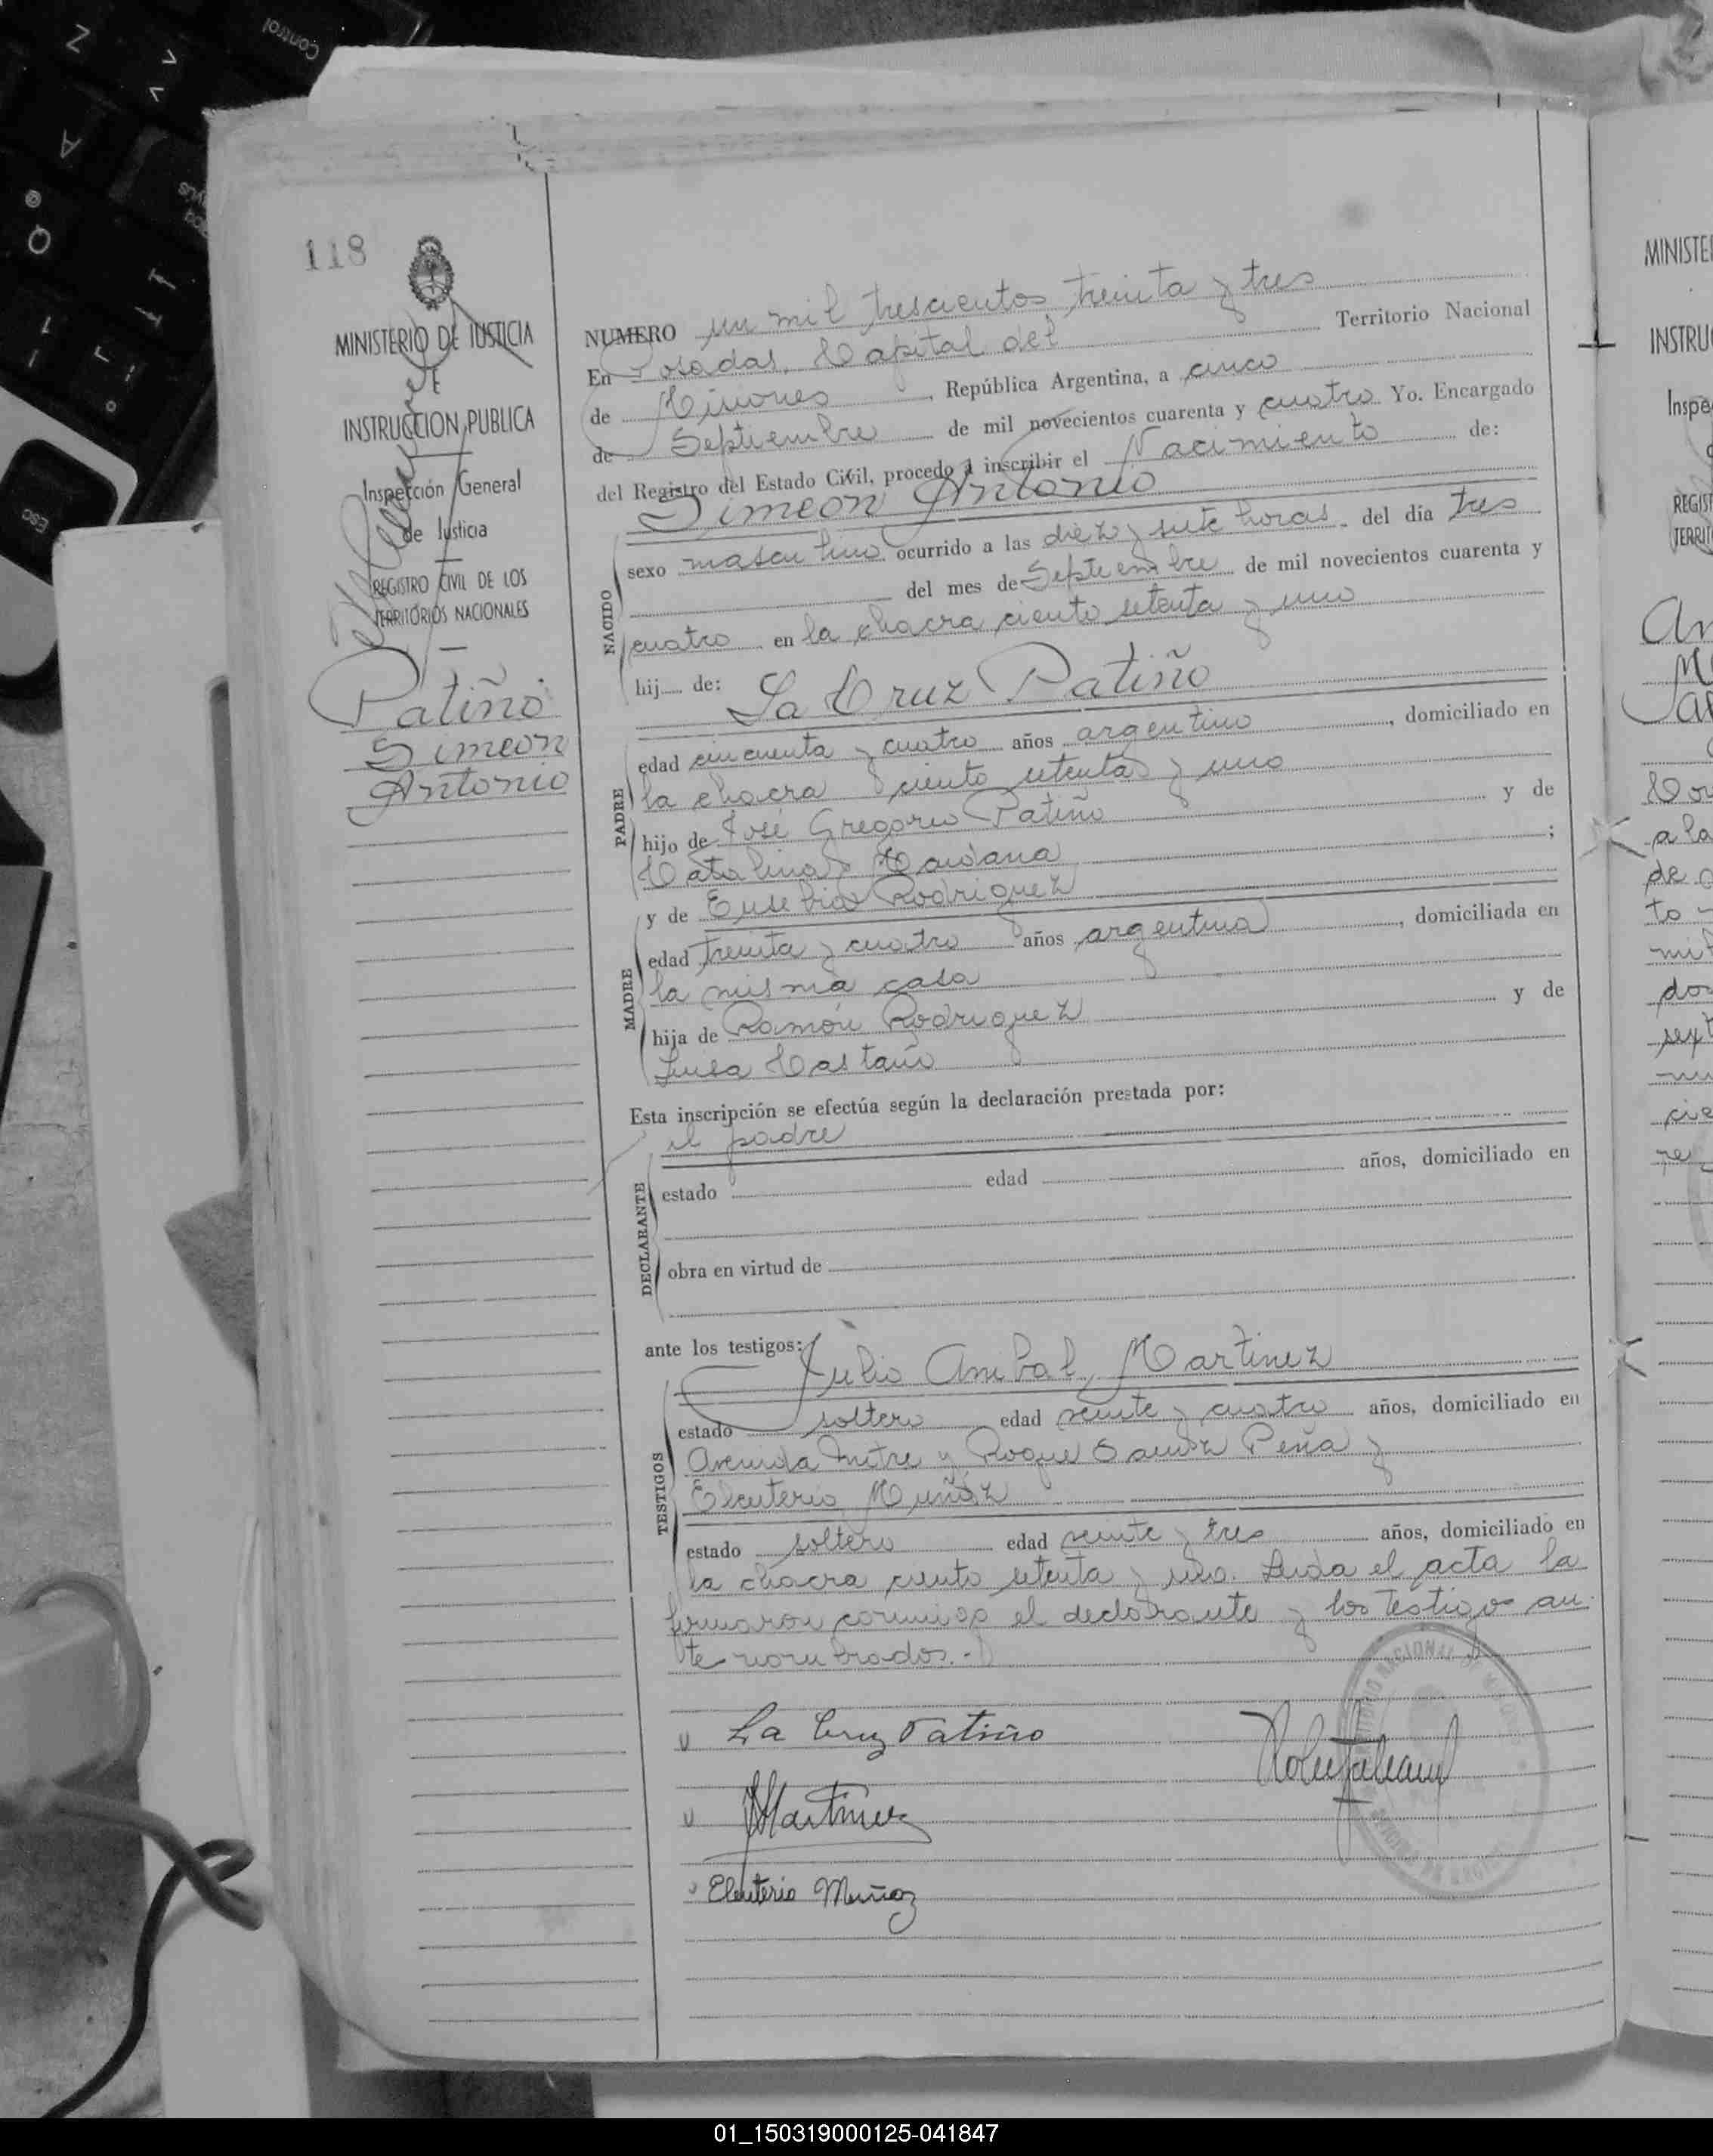 118
MINISTERIO DE JUSTICIA
E
INSTRUCCION PUBLICA
Inspección General
de Justicia
REGISTRO CIVIL DE LOS
TERRITORIOS NACIONALES
Patiño
Simeon
Antonio
NUMERO un mil trescientos treinta y tres
En Posadas, Capital del Territorio Nacional
de Misiones, República Argentina, a cinco
de Septiembre de mil novecientos cuarenta y cuatro Yo. Encargado
del Registro del Estado Civil, procedo a inscribir el Nacimiento de:
Simeon Antonio
NACIDO
sexo masculino ocurrido a las diez y siete horas. del día tres
del mes de Septiembre de mil novecientos cuarenta y
cuatro en la chacra ciento setenta y uno
hij de: La Cruz Patiño
PADRE
edad cincuenta y cuatro años argentino, domiciliado en
la chacra ciento setenta y uno
hijo de José Gregorio Patiño y de
Catalina Maidana;
MADRE
y de Eusebia Rodriguez
edad treinta y cuatro años argentina, domiciliada en
la misma casa
hija de Ramón Rodriguez y de
Luisa Castaño
Esta inscripción se efectúa según la declaración prestada por:
el padre
DECLARANTE
estado edad años, domiciliado en
obra en virtud de
ante los testigos: Julio Anibal Martinez
TESTIGOS
estado soltero edad veinte y cuatro años, domiciliado en
Avenida Mitre y Roque Saenz Peña y
Eleuterio Muñoz
estado soltero edad veinte y tres años, domiciliado en
la chacra ciento setenta y uno. Leida el acta la
firmaron conmigo el declarante y los testigos an
te nombrados.-
La Cruz Patiño
JMartinez
Eleuterio Muñoz
MINISTE
INSTRU
Inspe
REGIST
TERRIT
01_150319000125-041847